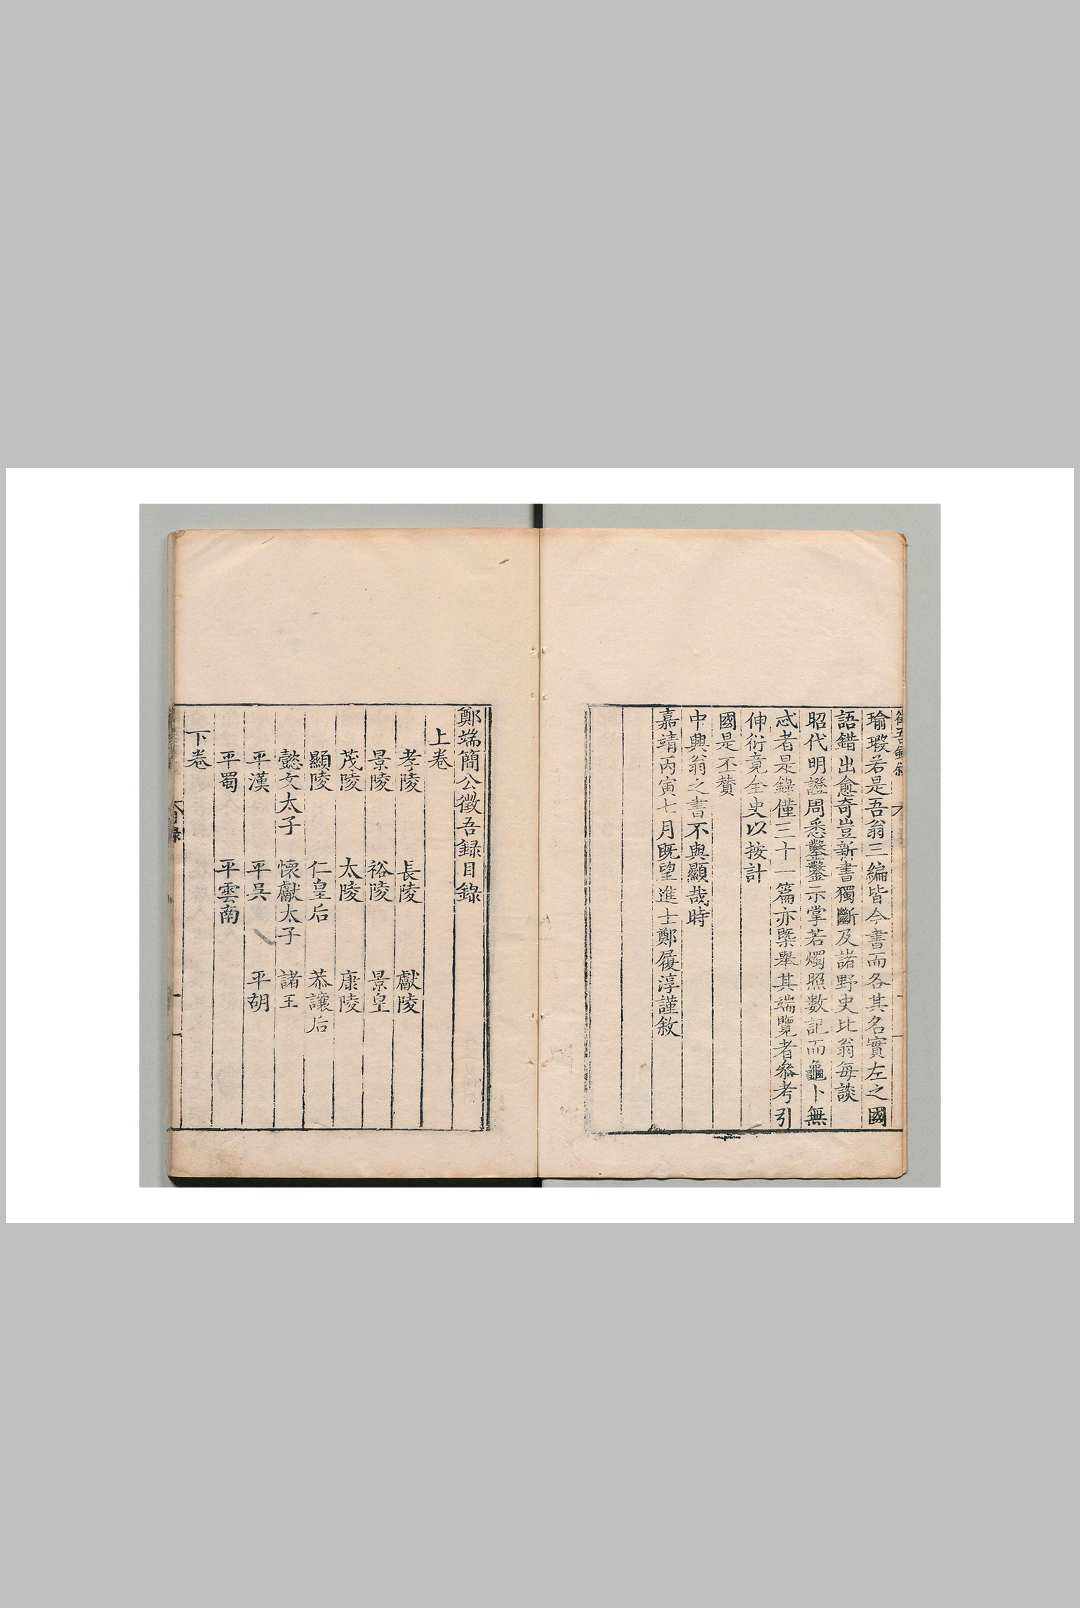 瑜瑕若是吾翁三編皆今書而各其名實左之國
語錯出愈奇豈新書獨斷及諸野史比翁每談
昭代明證周悉鑿鑿示掌若燭照數記而龜卜無
忒者是錄僅三十一篇亦槩舉其端覽者參考引
伸衍竟全史以按計
國是不贅
中興翁之書不與顯哉時
嘉靖丙寅七月既望進士鄭履淳謹敘
鄭端簡公徵吾録目錄
上卷
孝陵 長陵 獻陵
景陵 裕陵 景皇
茂陵 太陵 康陵
顯陵 仁皇后 恭讓后
懿文太子 懷獻太子 諸王
平漢 平吳 平胡
平蜀 平雲南
下卷
目錄